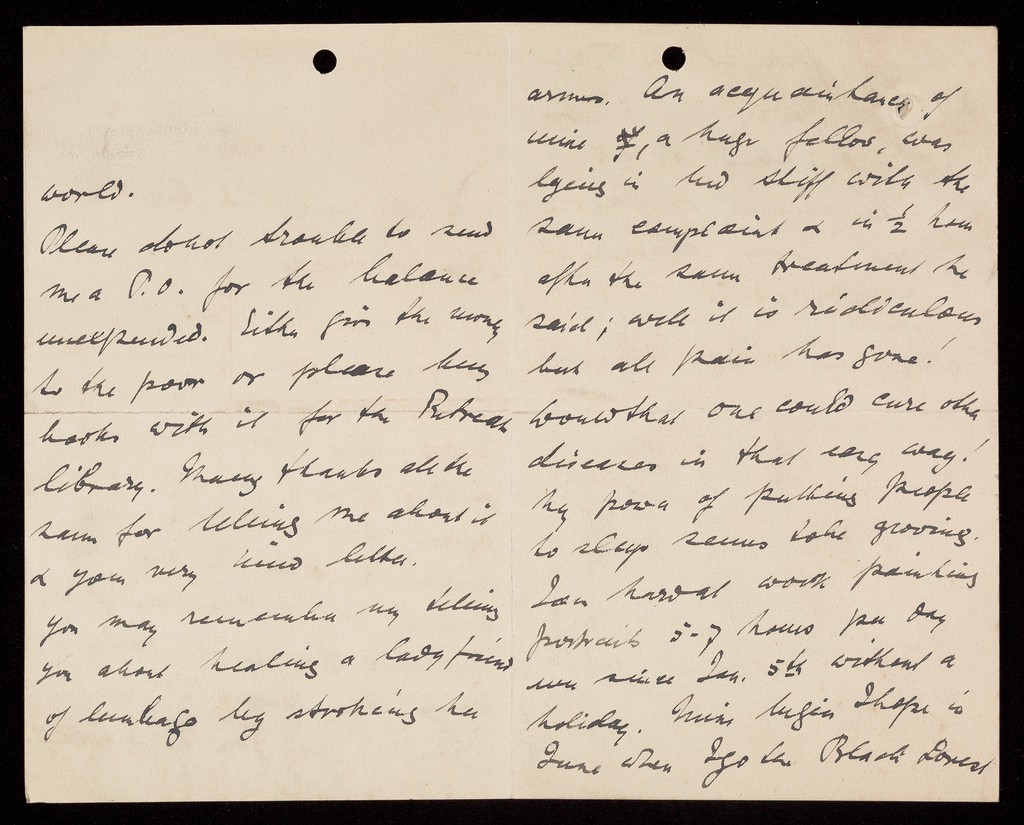 world.
Please do not trouble to send
me a P.O. for the balance
unexpended. Either give the money
to the poor or please buy
books with it for the Retreat
library. Many thanks all the
same for telling me about it
& your very kind letter.
You may remember my telling
you about healing a lady friend
of lumbago by stroking her
arms. An acquaintance of
mine, a huge fellow, was
lying in bed stiff with the
same complaint & in ½ hour
after the same treatment he
said; well it is ridiculous
but all pain has gone!
Would that one could cure other
diseases in that easy way!
My power of putting people
to sleep seems to be growing.
I am hard at work painting
portraits 5-7 hours per day
ever since Jan. 5th without a
holiday. Mine begin I hope in
June when I go the Black Forest